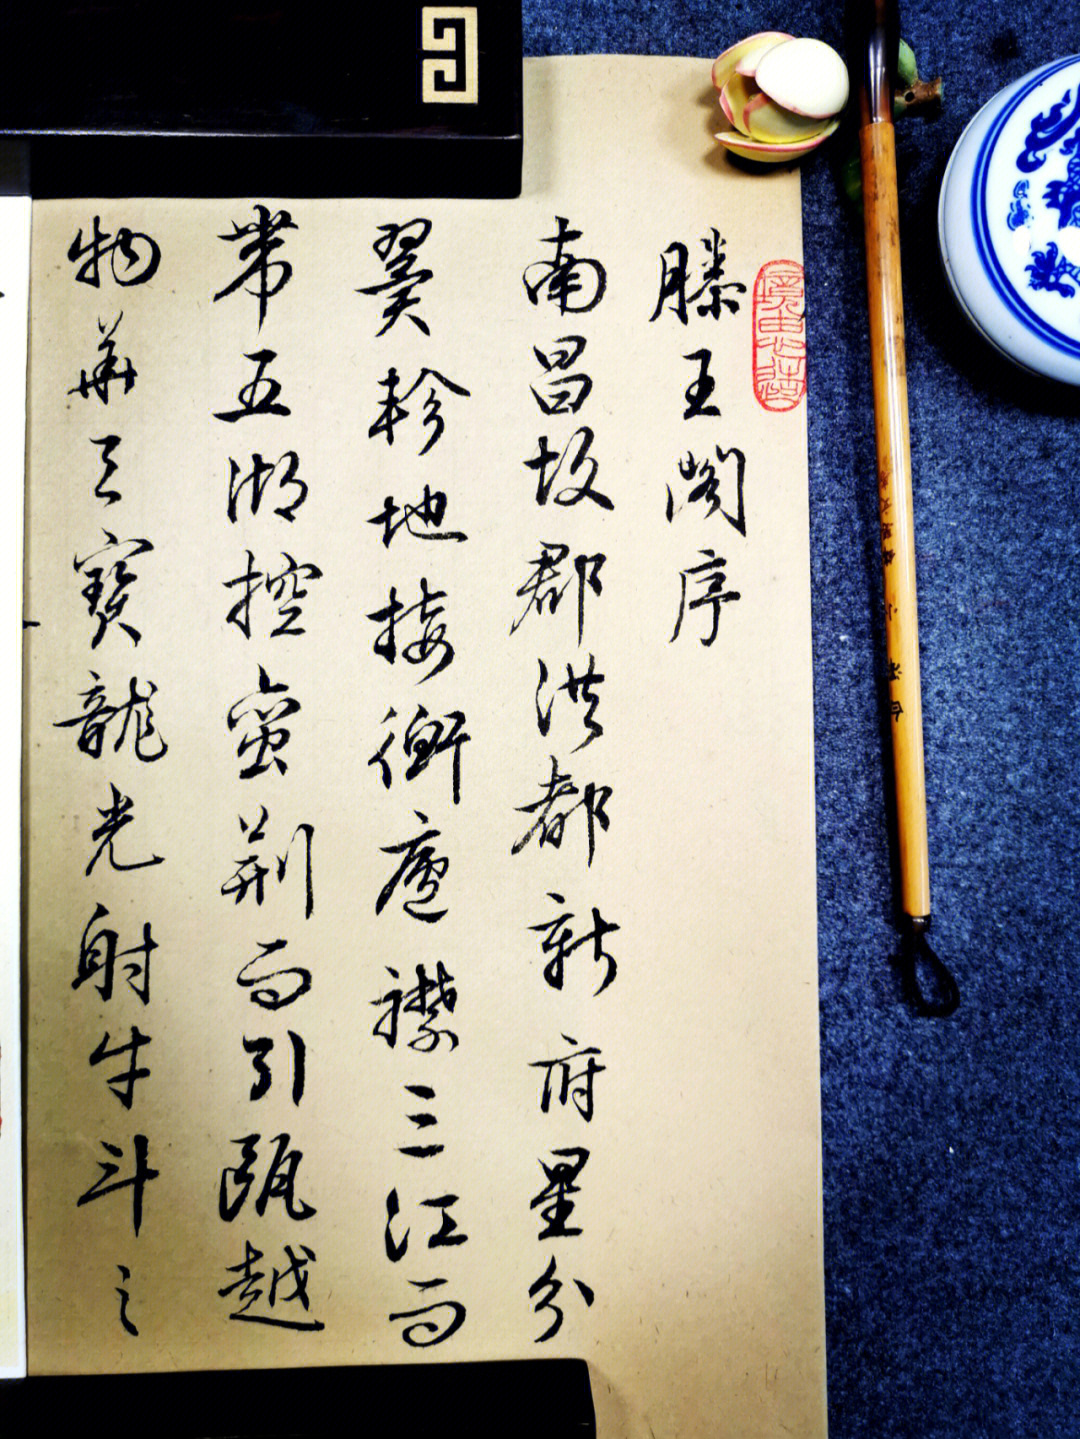 滕王阁序
南昌故郡洪都新府星分
翼轸地接衡庐襟三江而
带五湖控蛮荆而引瓯越
物华天宝龙光射牛斗之